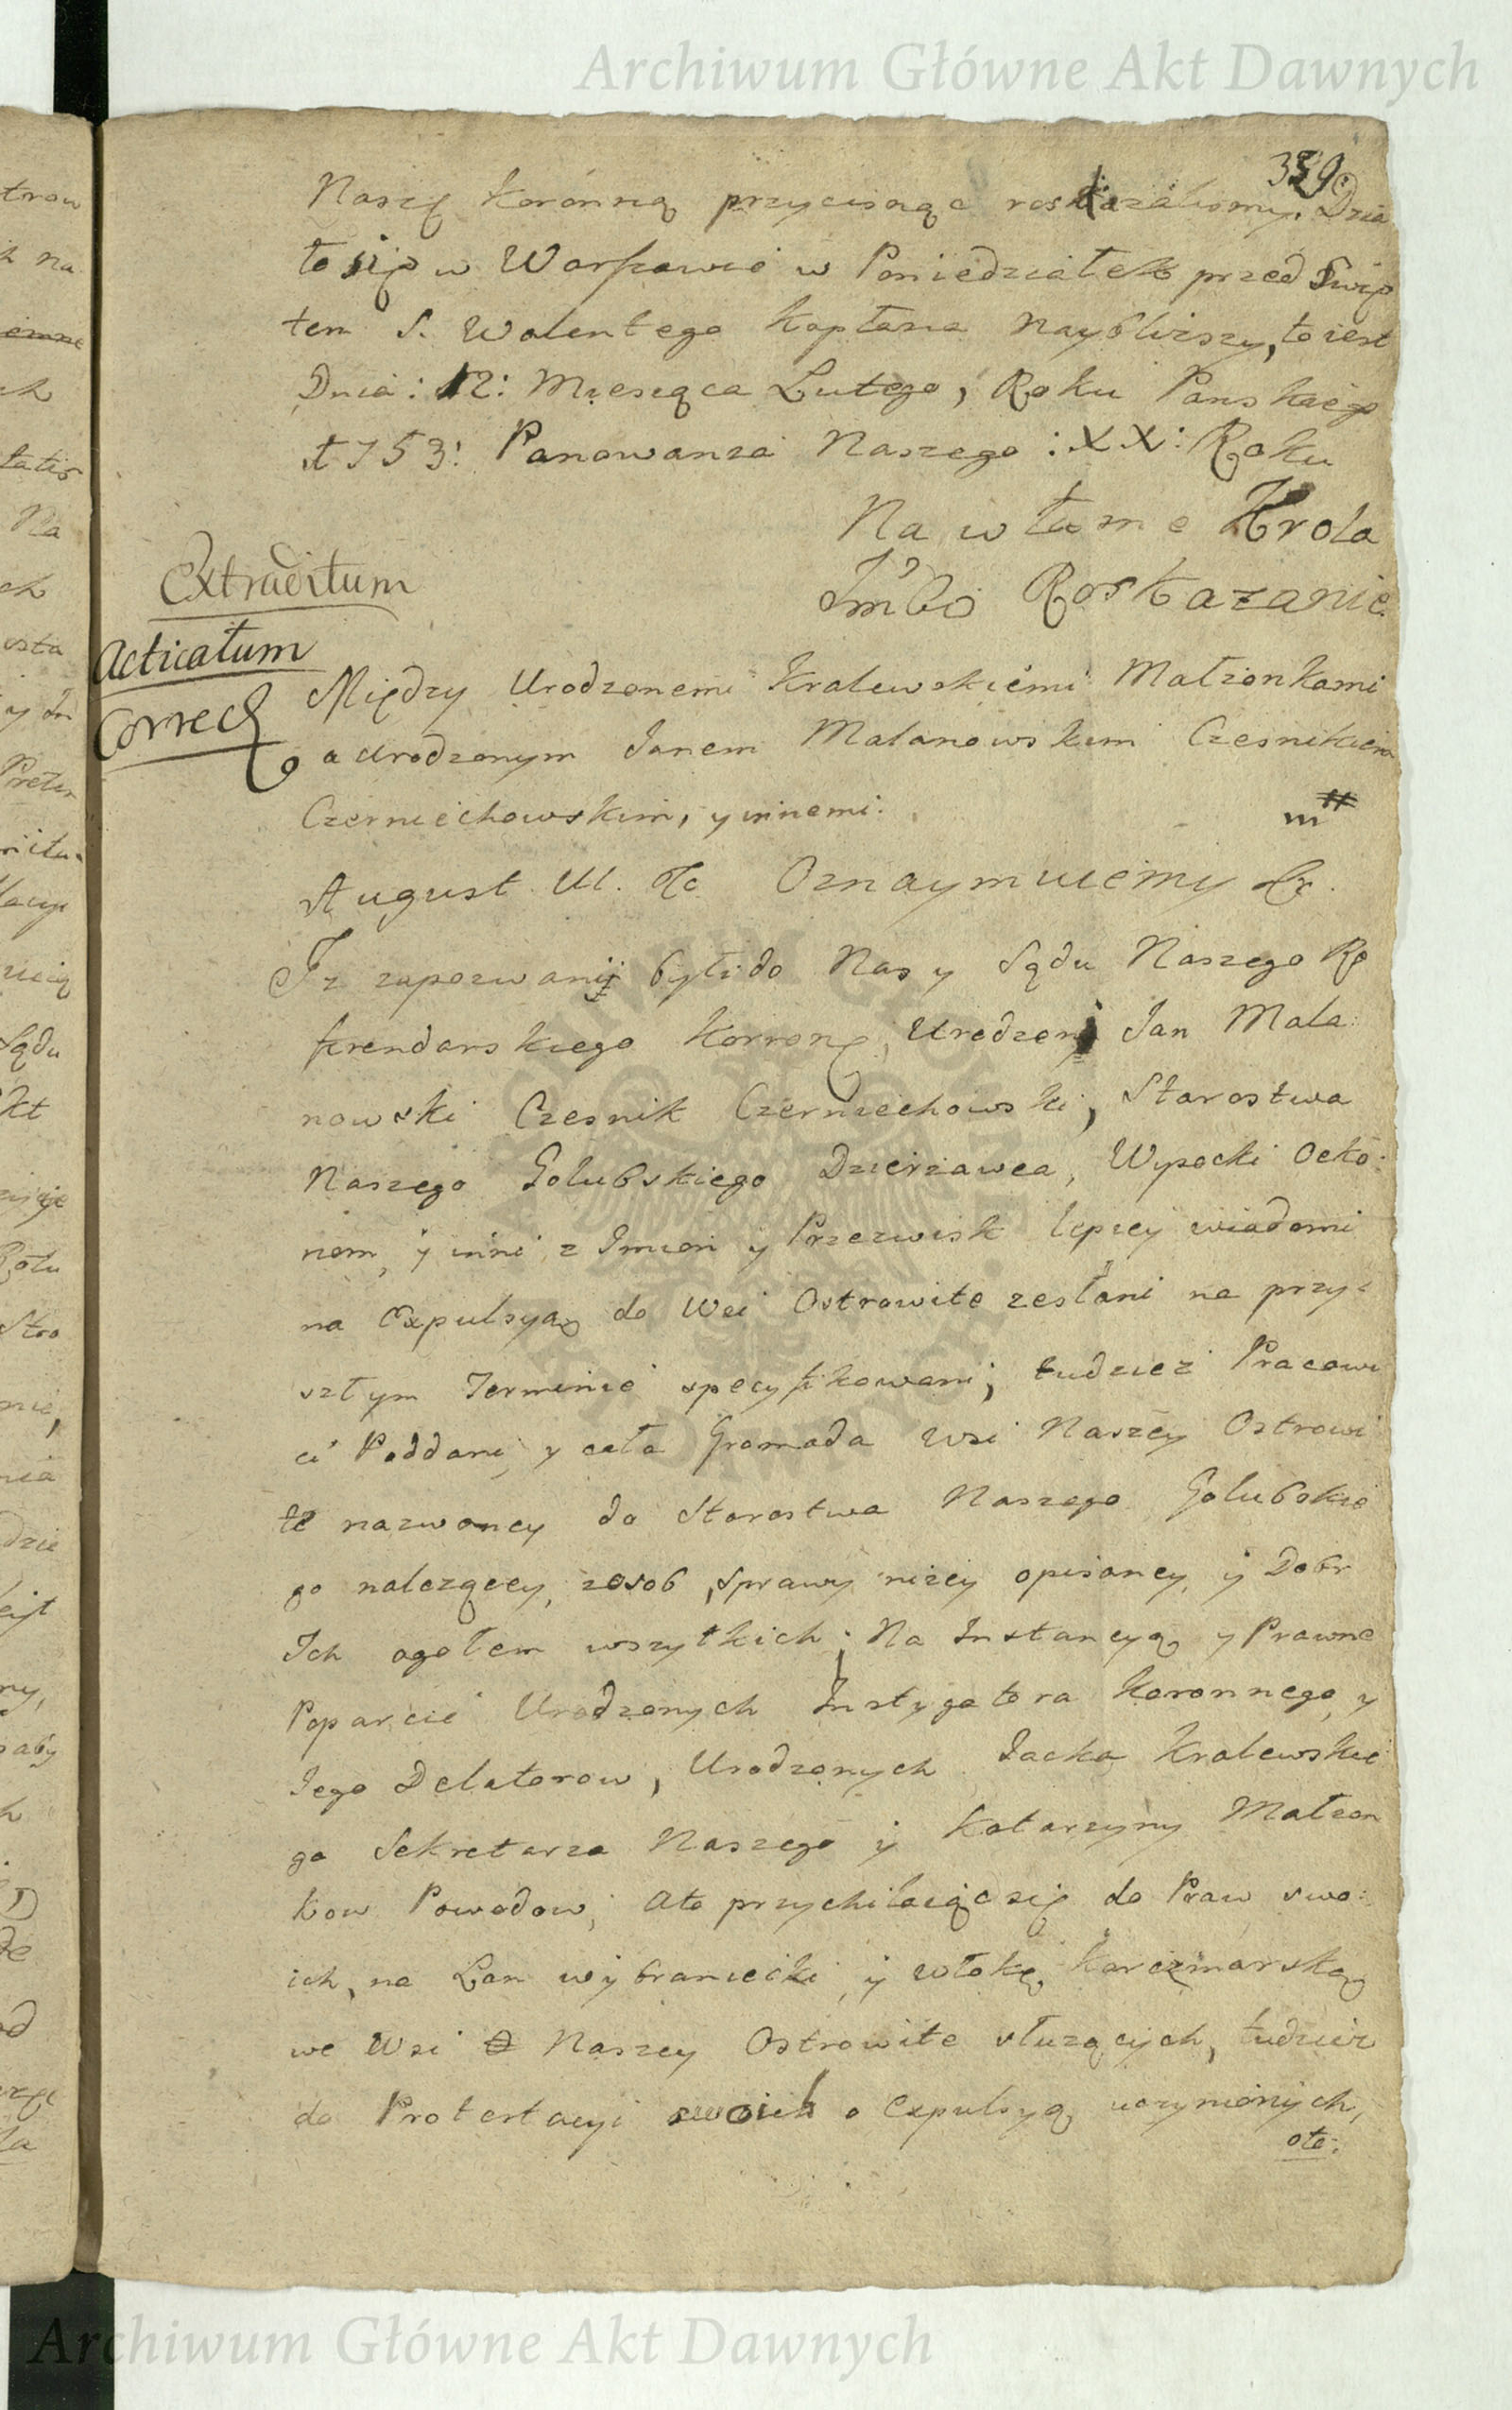 Archiwum Główne Akt Dawnych
339.
Naszę Koronną przycisnąć roskazalismy. Dzia
ło się w Warszawie w Poniedziałek przed Swię
tem S. Walentego Kapłana naybliższy, to iest
Dnia : 12: Miesiąca Lutego, Roku Panskiego
1753: Panowania Naszego : XX: Roku
Na własne Krola
Jmći Roskazanie
Extraditum
Acticatum
Correct
Między Urodzonemi Kralewskiemi Małżonkami
a Urodzonym Janem Malanowskim Czesnikiem
Czerniechowskim, y innemi.
August III. &c Oznaymuiemy &c.
Iż zapozwani byli do Nas y Sądu Naszego Re
ferendarskiego Koronę, Urodzeni Jan Mala:
nowski Czesnik Czerniechowski, Starostwa
Naszego Golubskiego Dzierżawca, Wysocki Oeko:
nom, y inni z Imion y Przezwisk lepiey wiadomi
na Expulsyą do Wsi Ostrowite zesłani na przy:
szłym Terminie specyfikowani; tudzież Pracowi
ci Poddani y cała Gromada Wsi Naszey Ostrowi
te nazwaney do Starostwa Naszego Golubskie
go należącey, z osob, sprawy niżey opisaney, y Dobr
Ich ogołem wszytkich; Na Instancyą y Prawne
Poparcie Urodzonych Instygatora Koronnego, y
Iego Delatorow, Urodzonych Jacka Kralewskie
go Sekretarza Naszego y Katarzyny Małżon
kow Powodow; Ato przychilaiąc się do Praw swo:
ich, na Łan wybraniecki, y włokę Karczmarską
we Wsi Naszey Ostrowite służących, tudzież
do Protestacyi swoich o Expulsyą uczynionych,
oto:
Archiwum Główne Akt Dawnych